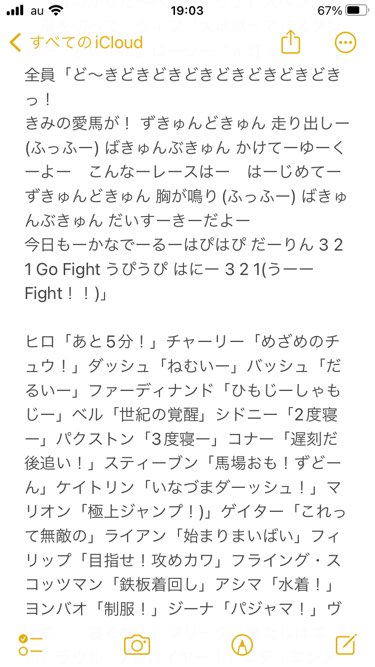 au 19:03 67%
すべてのiCloud
全員「ど〜きどきどきどきどきどきどきどき
っ！
きみの愛馬が！ ずきゅんどきゅん 走り出しー
(ふっふー) ばきゅんぶきゅん かけてーゆーく
ーよー　こんなーレースはー　はーじめてー
ずきゅんどきゅん 胸が鳴り (ふっふー) ばきゅ
んぶきゅん だいすーきーだよー
今日もーかなでーるーはぴはぴ だーりん 3 2
1 Go Fight うぴうぴ はにー 3 2 1(うーー
Fight！！)」
ヒロ「あと5分！」チャーリー「めざめのチ
ュウ！」ダッシュ「ねむいー」バッシュ「だ
るいー」ファーディナンド「ひもじーしゃも
じー」ベル「世紀の覚醒」シドニー「2度寝
ー」パクストン「3度寝ー」コナー「遅刻だ
後追い！」スティーブン「馬場おも！ずどー
ん」ケイトリン「いなづまダーッシュ！」マ
リオン「極上ジャンプ！)」ゲイター「これっ
て無敵の」ライアン「始まりまいばい」フィ
リップ「目指せ！攻めカワ」フライング・ス
コッツマン「鉄板着回し」アシマ「水着！」
ヨンバオ「制服！」ジーナ「パジャマ！」ヴ